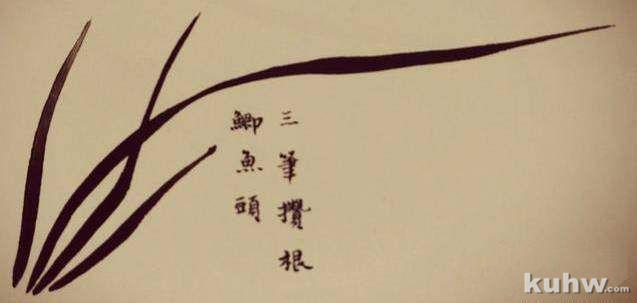 三筆攢根
鯽魚頭
kuhw.com